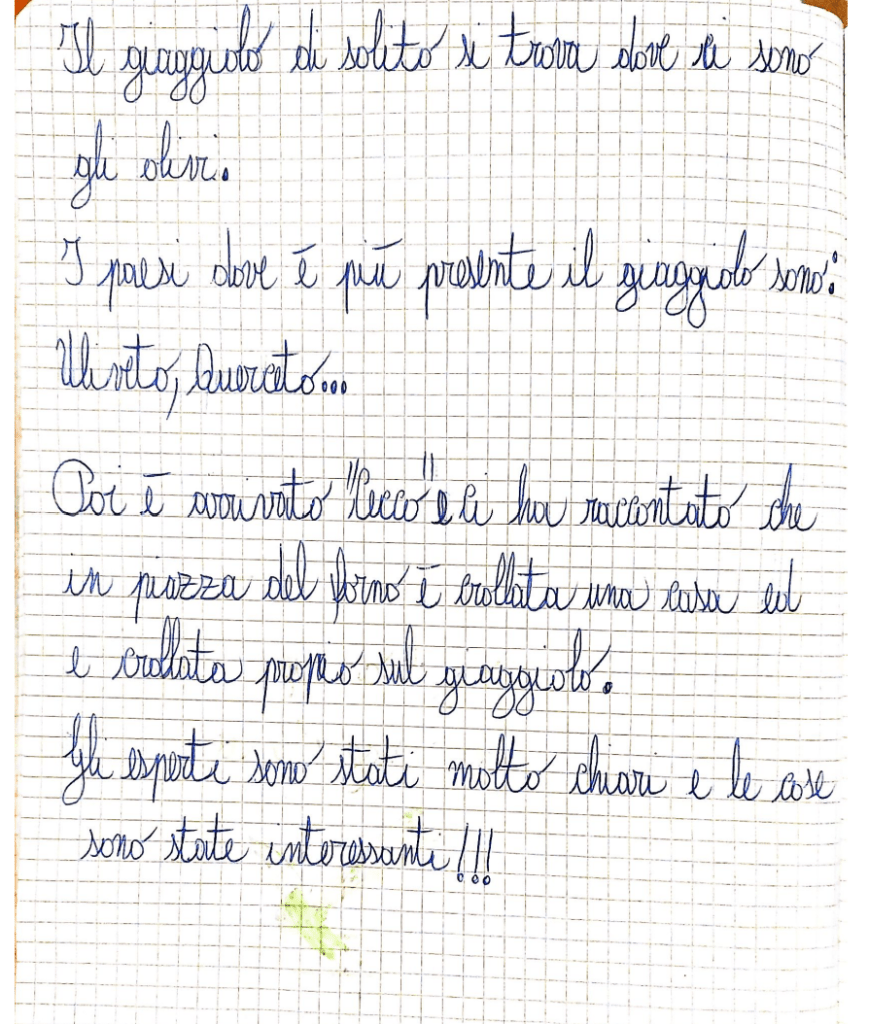 Il giaggiolo di solito si trova dove ci sono
gli olivi.
I paesi dove è più presente il giaggiolo sono:
Uliveto, Querceto...
Poi è arrivato "Cecco" e ci ha raccontato che
in piazza del forno è crollata una casa ed
e crollata proprio sul giaggiolo.
Gli esperti sono stati molto chiari e le cose
sono state interessanti!!!